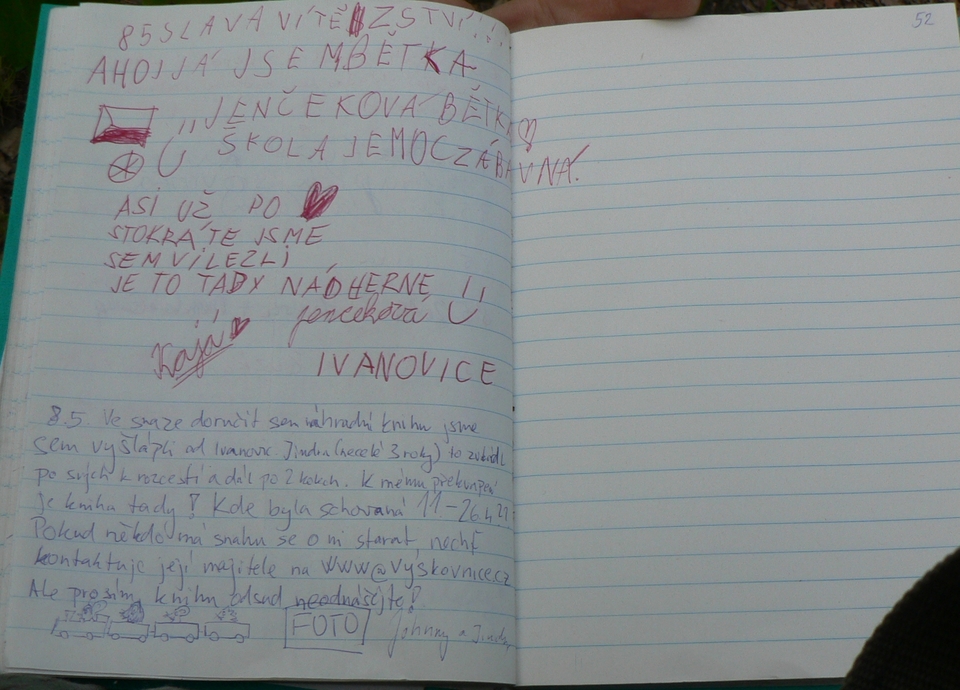 52
85 SLAVA VÍTĚZSTVÍ!!!
AHOJ JÁ JSEM BĚTKA
„JENČEKOVÁ BĚTKA
ŠKOLA JE MOC ZÁBAVNÁ.
ASI UŽ PO
STOKRÁTE JSME
SEM VILEZLI
JE TO TADY NÁDHERNE
jencekova
Kája
IVANOVICE
8.5. Ve snaze doručit sem náhradní knihu jsme
sem vyšlápli od Ivanovic. Jindra (necelé 3 roky) to zvládl
po svých k rozcestí a dál po 2 kolech. K mému překvapení
je kniha tady! Kde byla schovaná 11.-26.4.21?
Pokud někdo má snahu se o ni starat, nechť
kontaktuje její majitele na www@vyskovnice.cz
Ale prosím, knihu odsud neodnášejte!
FOTO
Johnny a Jindra